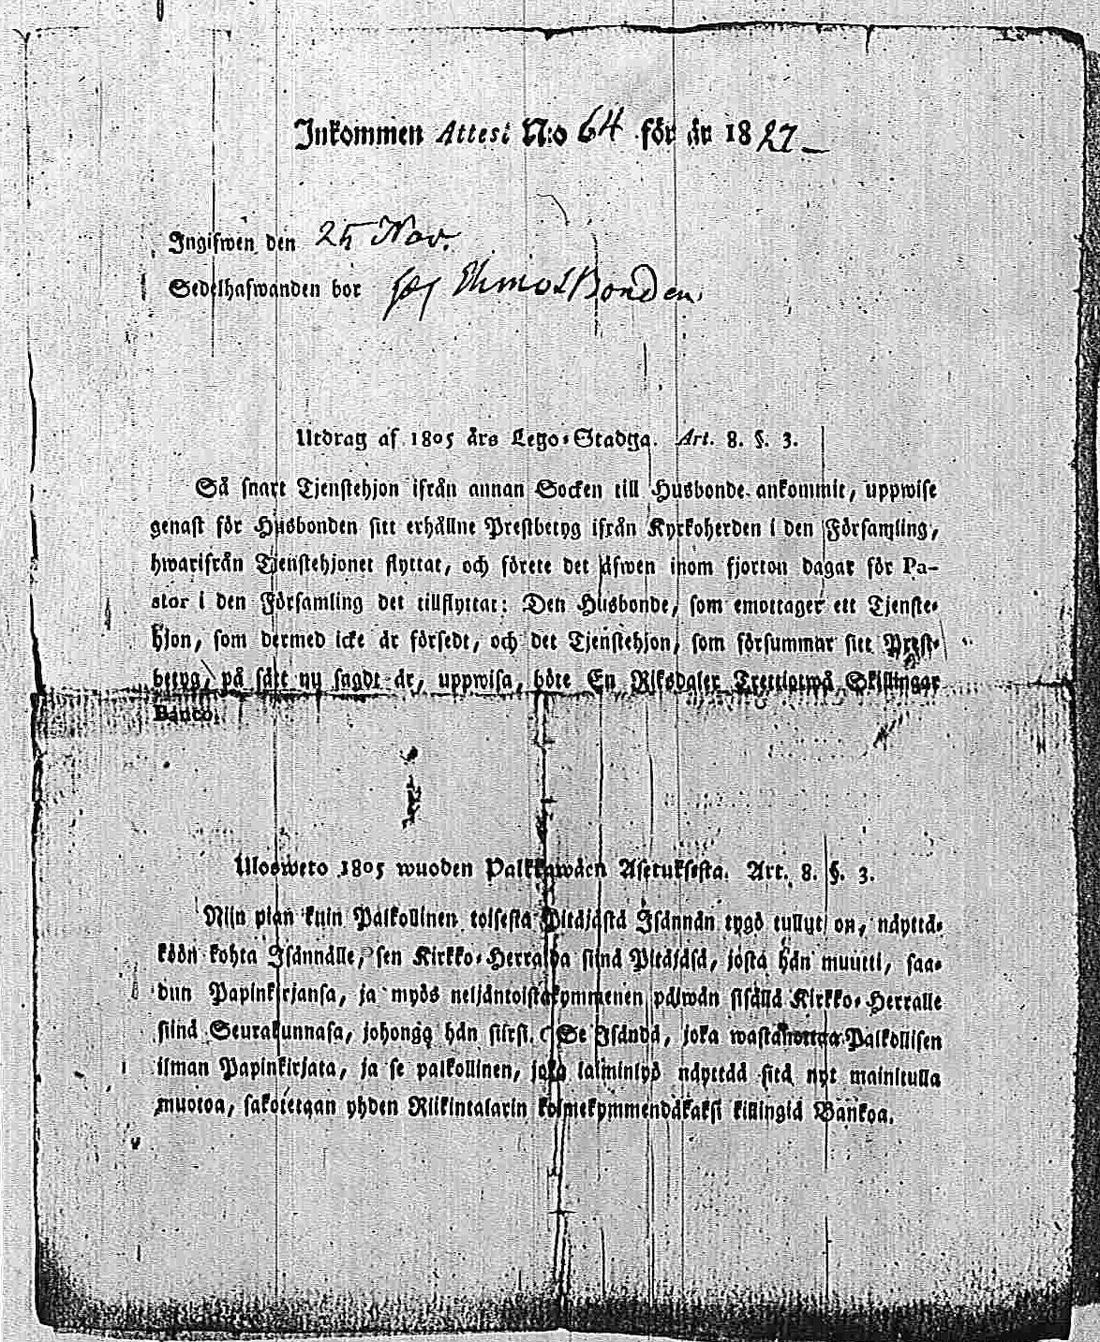 Inkommen Attest N:o 64 för år 1827
Ingifwen den 25 Nov.
Sedelhafwanden bor hos Bonden
Utdrag af 1805 års Lego-Stadga. Art. 8. §. 3.
Så snart Tjenstehjon ifrån annan Socken till Husbonde ankommit, uppwise
genast för Husbonden sitt erhållne Prestbetyg ifrån Kyrkoherden i den Församling,
hwarifrån Tjenstehjonet flyttat, och förete det äfwen inom fjorton dagar för Pa-
stor i den Församling det tillflyttat: Den Husbonde, som emottager ett Tjenste-
hjon, som dermed icke är försedt, och det Tjenstehjon, som försummar sitt Prest-
betyg, på sätt nu sagdt är, uppwisa, böte En Riksdaler Trettiotwå Skillingar
Banco.
Ulosweto 1805 wuoden Palkkawäen Asetuksesta. Art. 8. §. 3.
Niin pian kuin Palkollinen toisesta Pitäjästä Isännän tygö tullut on, näyttä-
köön kohta Isännälle, sen Kirkko-Herralda siinä Pitäjäsä, josta hän muutti, saa-
dun Papinkirjansa, ja myös neljäntoistakymmenen päiwän sisällä Kirkko-Herralle
siinä Seurakunnasa, johonga hän siirsi. Se Isändä, joka wastanottaa Palkollisen
ilman Papinkirjata, ja se palkollinen, joka laiminlyö näyttää sitä nyt mainitulla
muotoa, sakotetaan yhden Riikintalarin kolmekymmendäkaksi killingiä Bankoa.